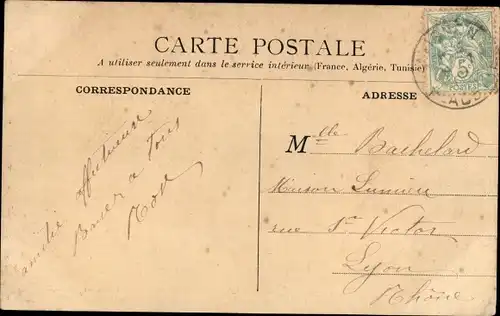 CARTE POSTALE
A utiliser seulement dans le service intérieur (France, Algérie, Tunisie)
CORRESPONDANCE
amitié affectueuse
à tous
ADRESSE
Mlle Bachelard
Maison Lumière
rue St Victor
Lyon
Rhône
5
POSTES